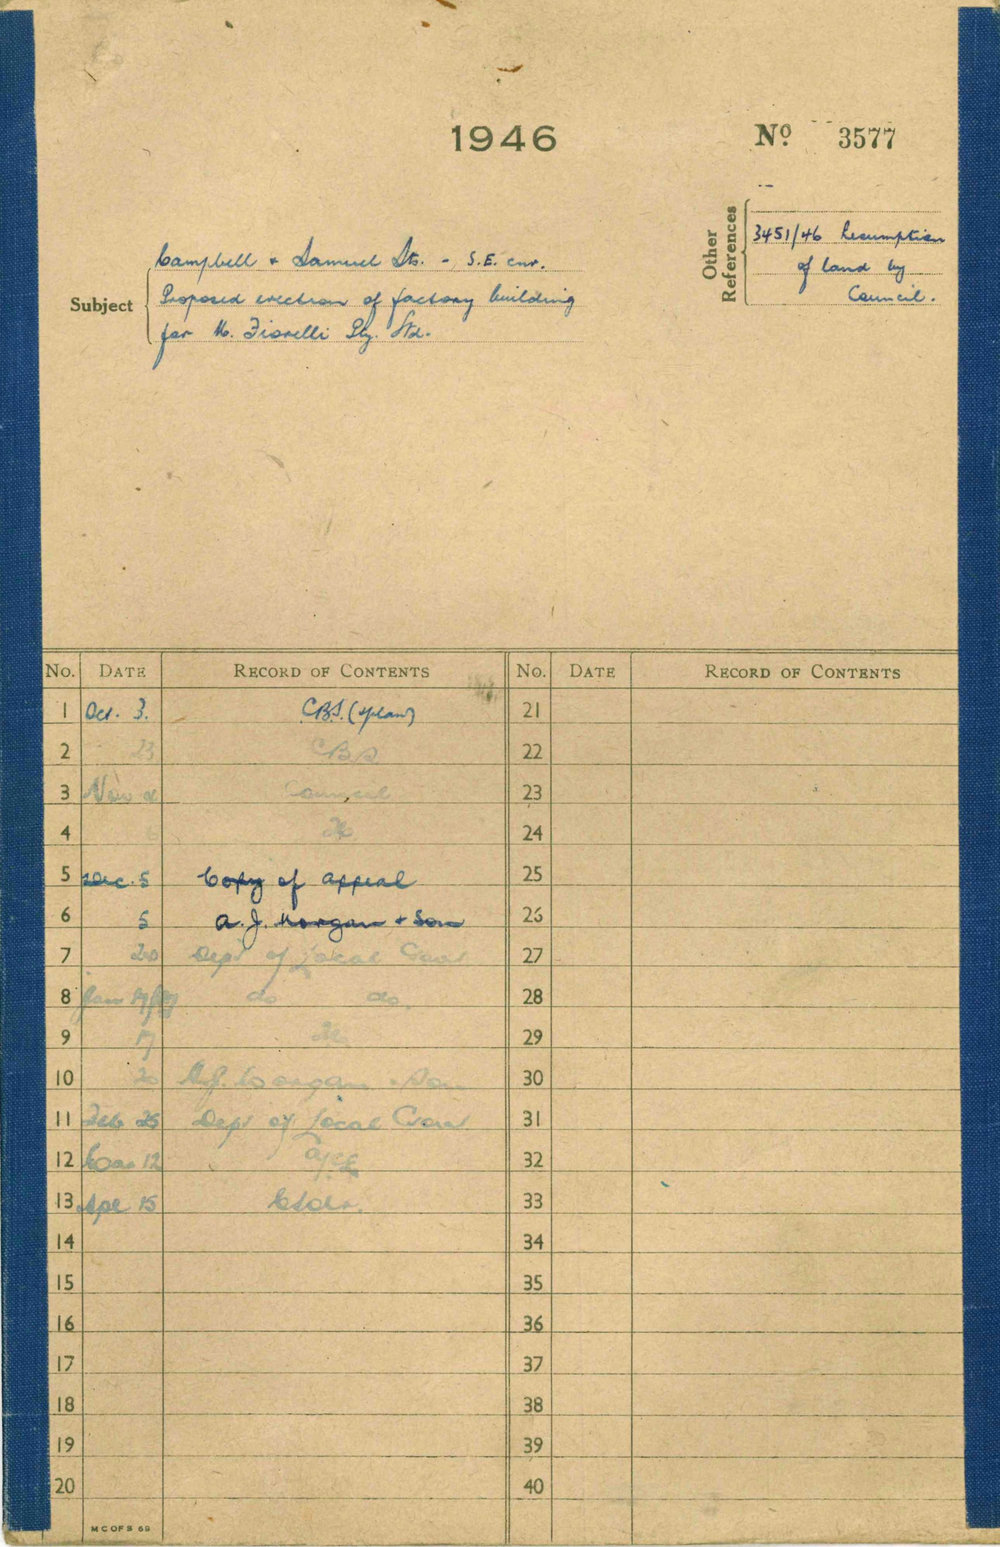 1946
No. 3577
Other References
3451/46 Resumption
of land by
Council.
Subject
Campbell + Samuel Sts. - S.E. cnr.
Proposed erection of factory building
for M. Fiorelli Pty. Ltd.
No. DATE RECORD OF CONTENTS No. DATE RECORD OF CONTENTS
1 Oct. 3. CBS. (+plan) 21
2 23 CBS 22
3 Nov Council 23
4 6 24
5 Dec. 5 Copy of appeal 25
6 5 A. J. Morgan + Son 26
7 20 Dept of Local Govt 27
8 Jan do do. 28
9 17 29
10 20 A.J. Morgan + Son 30
11 Feb 25 Dept of Local Govt 31
12 12 32
13 Apl 15 33
14 34
15 35
16 36
17 37
18 38
19 39
20 40
M C OF S 69